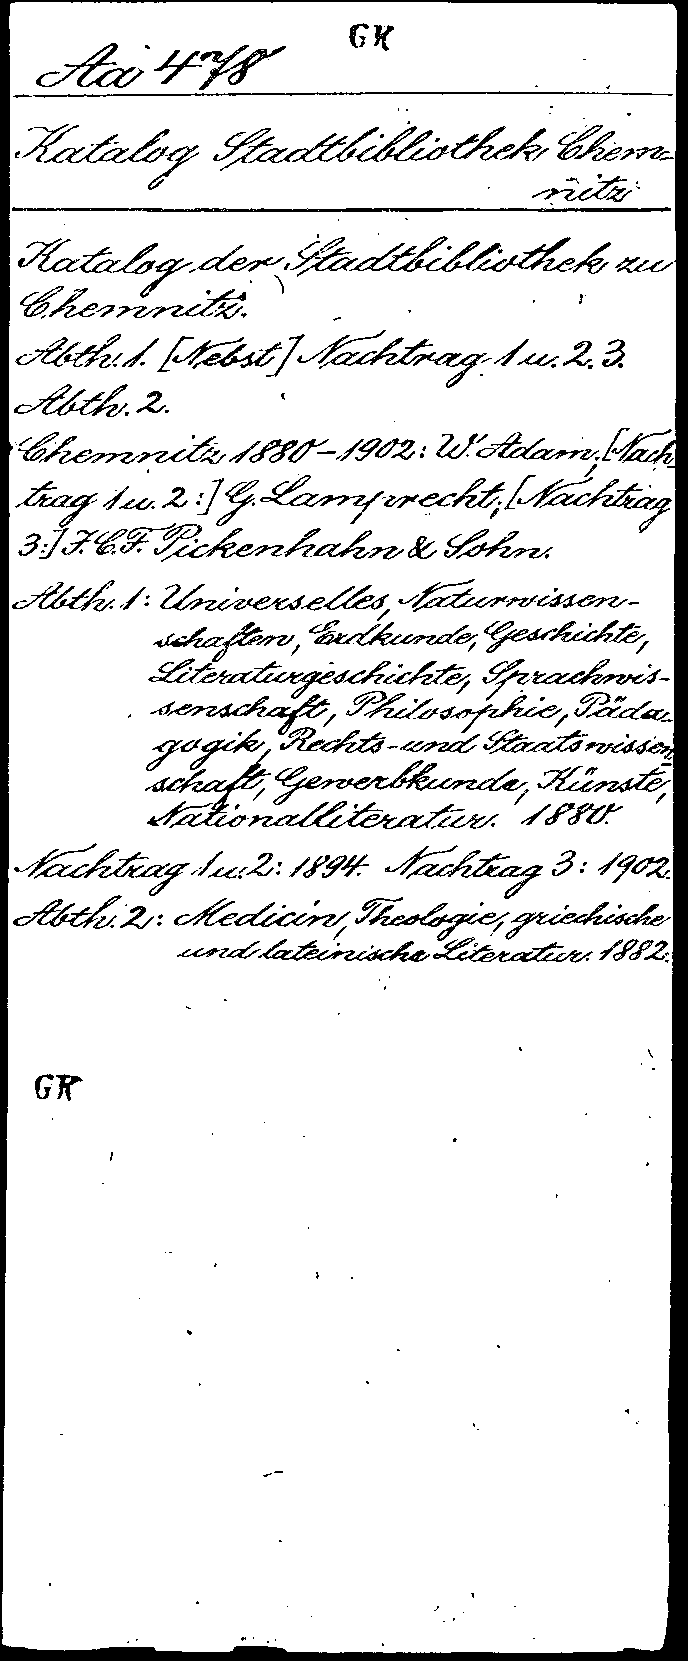 GK
Aa 478
Katalog Stadtbibliothek Chem=
nitz
Katalog der Stadtbibliothek zu
Chemnitz.
Abth. 1. [Nebst] Nachtrag 1 u. 2. 3.
Abth. 2.
Chemnitz 1880-1902: W. Adam; [Nach
trag 1 u. 2:] G. Lamprecht; [Nachtrag
3:] J. C. F. Pickenhahn & Sohn.
Abth. 1: Universelles, Naturwissen-
schaften, Erdkunde, Geschichte,
Literaturgeschichte, Sprachwis-
senschaft, Philosophie, Päda-
gogik, Rechts- und Staatswissen=
schaft, Gewerbkunde, Künste,
Nationalliteratur. 1880.
Nachtrag 1 u. 2: 1894. Nachtrag 3: 1902.
Abth. 2: Medicin, Theologie, griechische
und lateinische Literatur. 1882.
GK